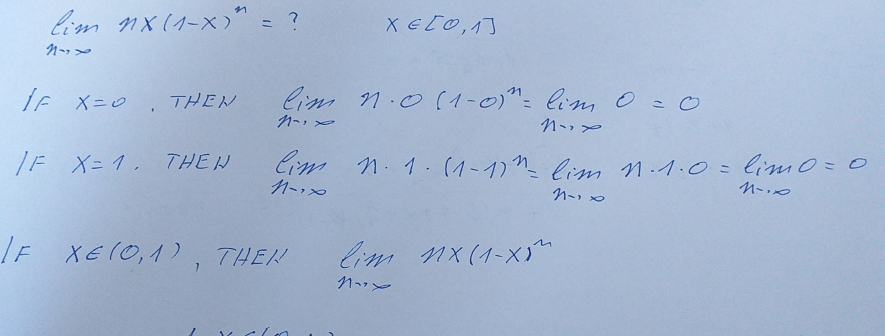 lim n→∞ nx(1-x)^n = ? x∈[0,1]
IF x=0, THEN lim n→∞ n·0(1-0)^n = lim n→∞ 0 = 0
IF x=1, THEN lim n→∞ n·1·(1-1)^n = lim n→∞ n·1·0 = lim n→∞ 0 = 0
IF x∈(0,1), THEN lim n→∞ nx(1-x)^n